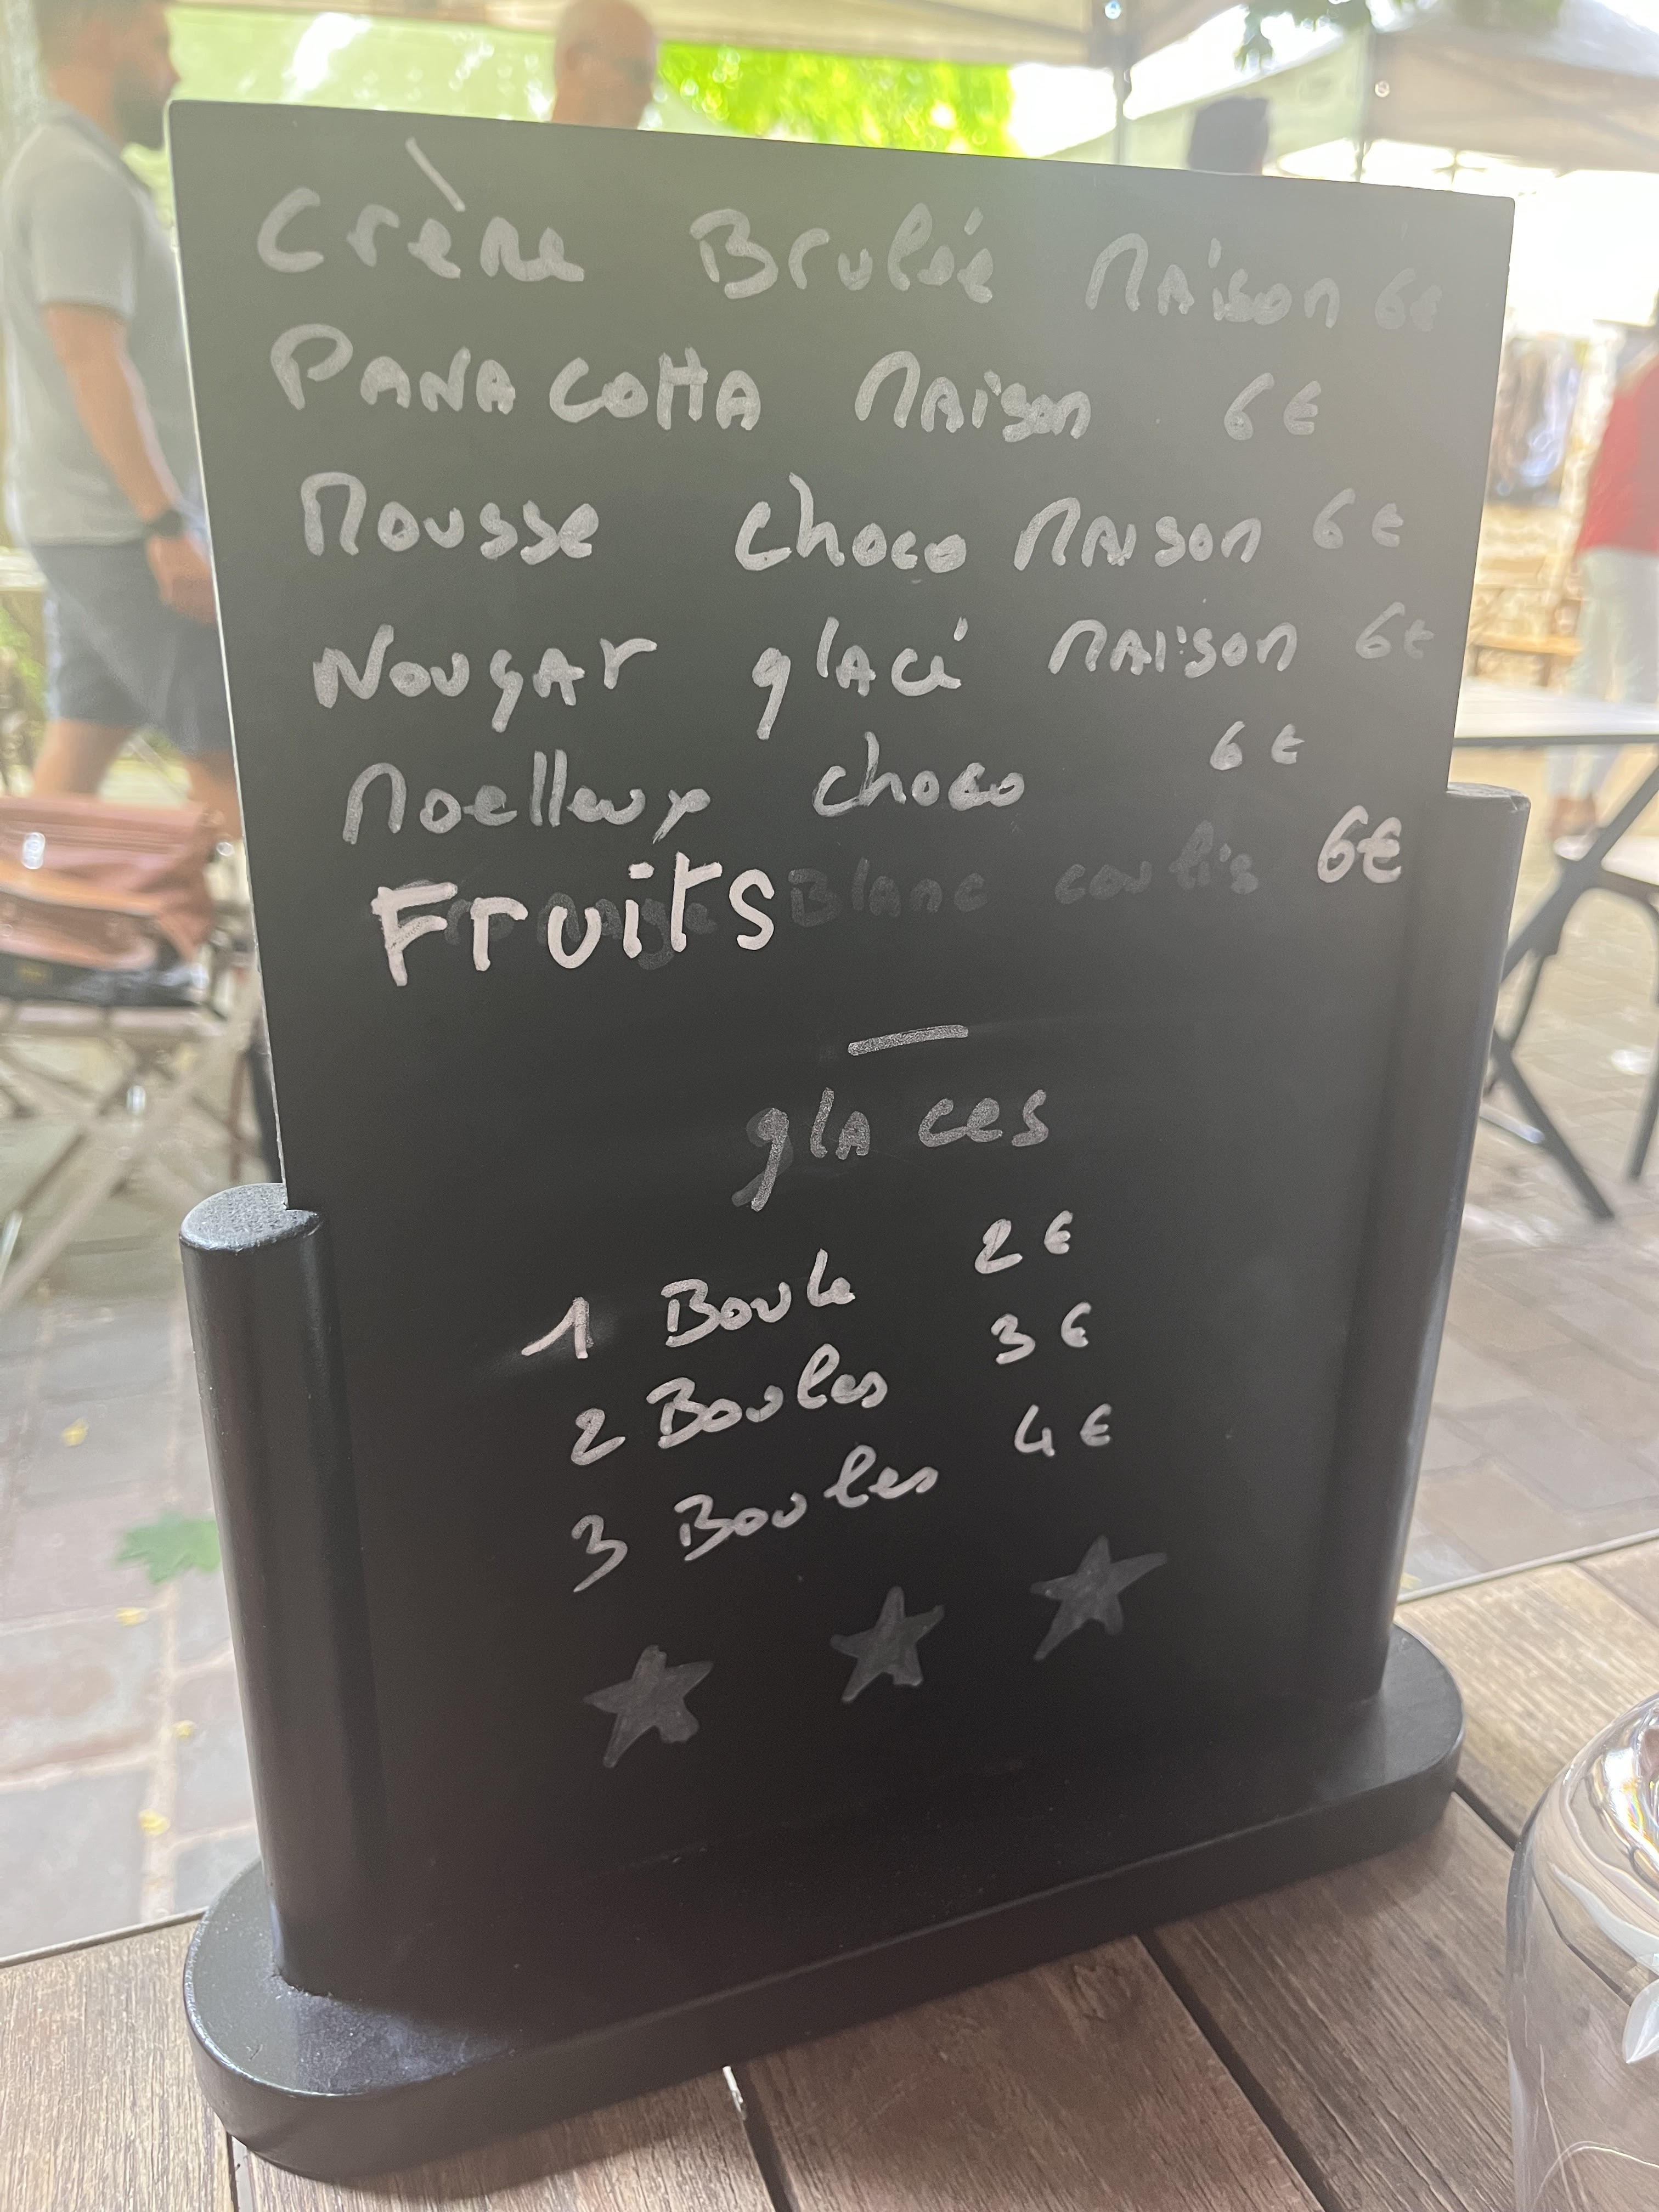 Crème Brulée Maison 6€
PANA COTTA MAison 6€
Mousse choco MAison 6€
NougAT glAcé MAison 6€
Moelleux choco 6€
Fruits Blanc coulis 6€
glAces
1 Boule 2€
2 Boules 3€
3 Boules 4€